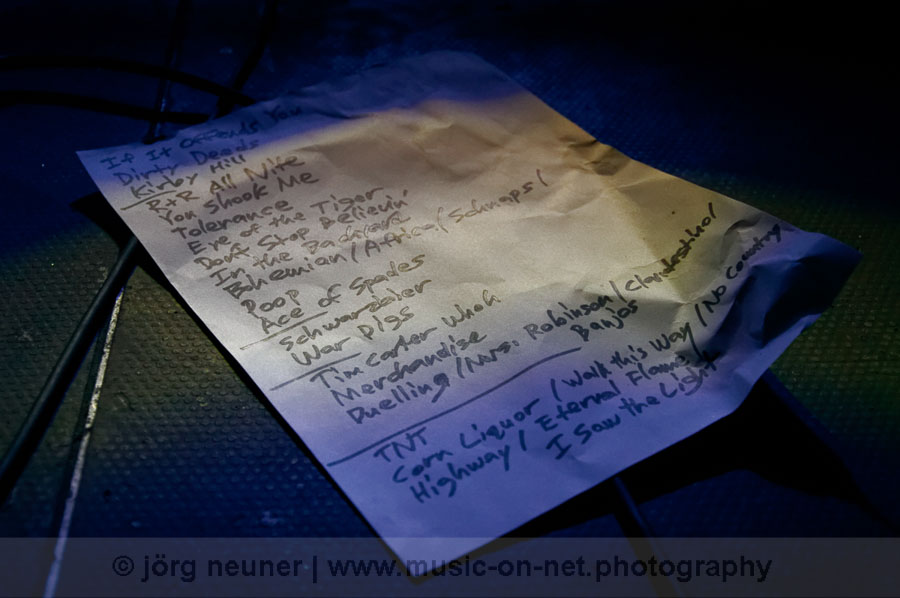 If It Offends You
Dirty Deeds
Kirby Hill
R+R All Nite
You Shook Me
Tolerance
Eye of the Tiger
Dont Stop Believin'
In the Backyard
Bohemian / Africa / Schnaps /
Poop
Ace of Spades
Schwarzbier
War Pigs
Tim Carter Whoh
Merchandise
Duelling / Mrs. Robinson / Clandestino /
Banjos
TNT
Corn Liquor / Walk this Way / No Country
Highway / Eternal Flame /
I Saw the Light
© jörg neuner | www.music-on-net.photography